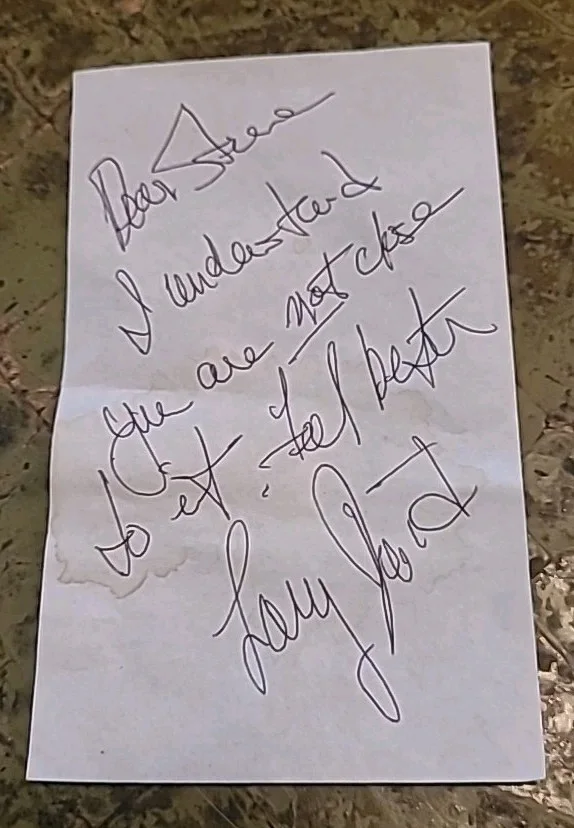 Dear Steve
I understand
you are not close
to it. Feel better
Larry